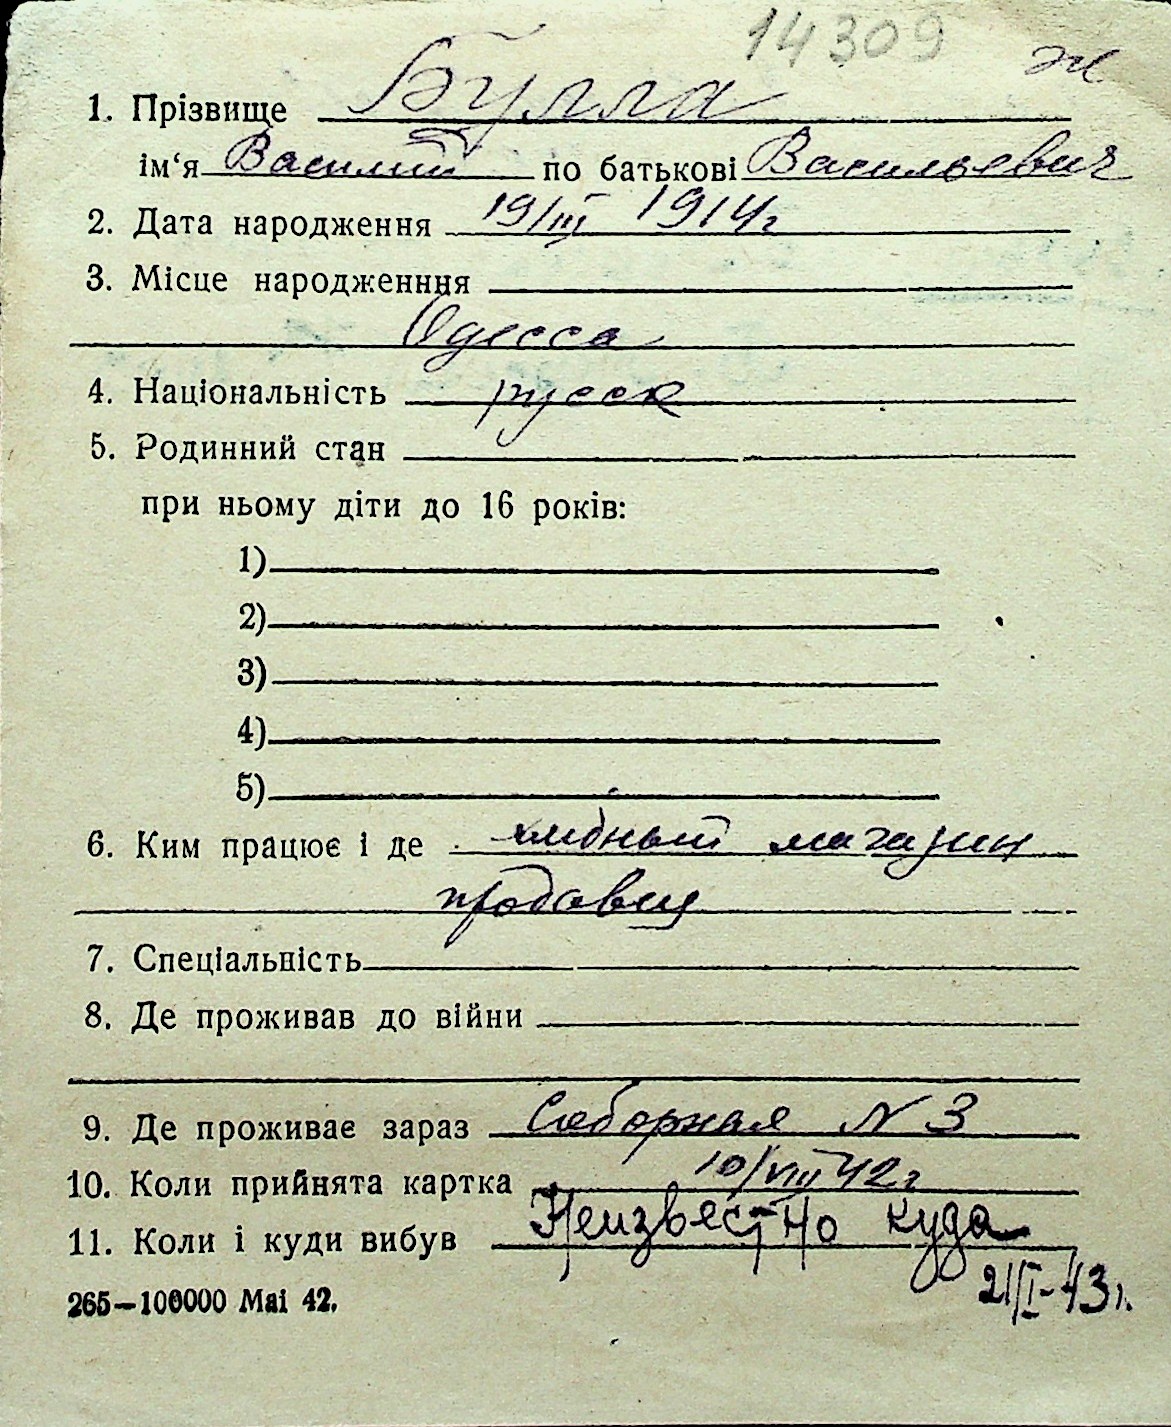 14309
1. Прізвище Булла
ім‘я Василий по батькові Васильевич
2. Дата народження 19/III 1914г
3. Місце народженння
Одесса
4. Національність русск
5. Родинний стан
при ньому діти до 16 років:
1)
2)
3)
4)
5)
6. Ким працює і де хлебный магазин
продавец
7. Спеціальність
8. Де проживав до війни
9. Де проживає зараз Соборная N 3
10. Коли прийнята картка 10/VIII 42г
11. Коли і куди вибув Неизвестно куда
21/I-43г.
265—100000 Маі 42.